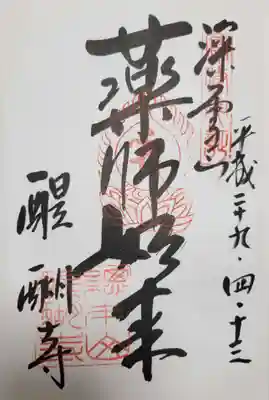 深雪山
平成二十九・四・十三
薬師如来
醍醐寺